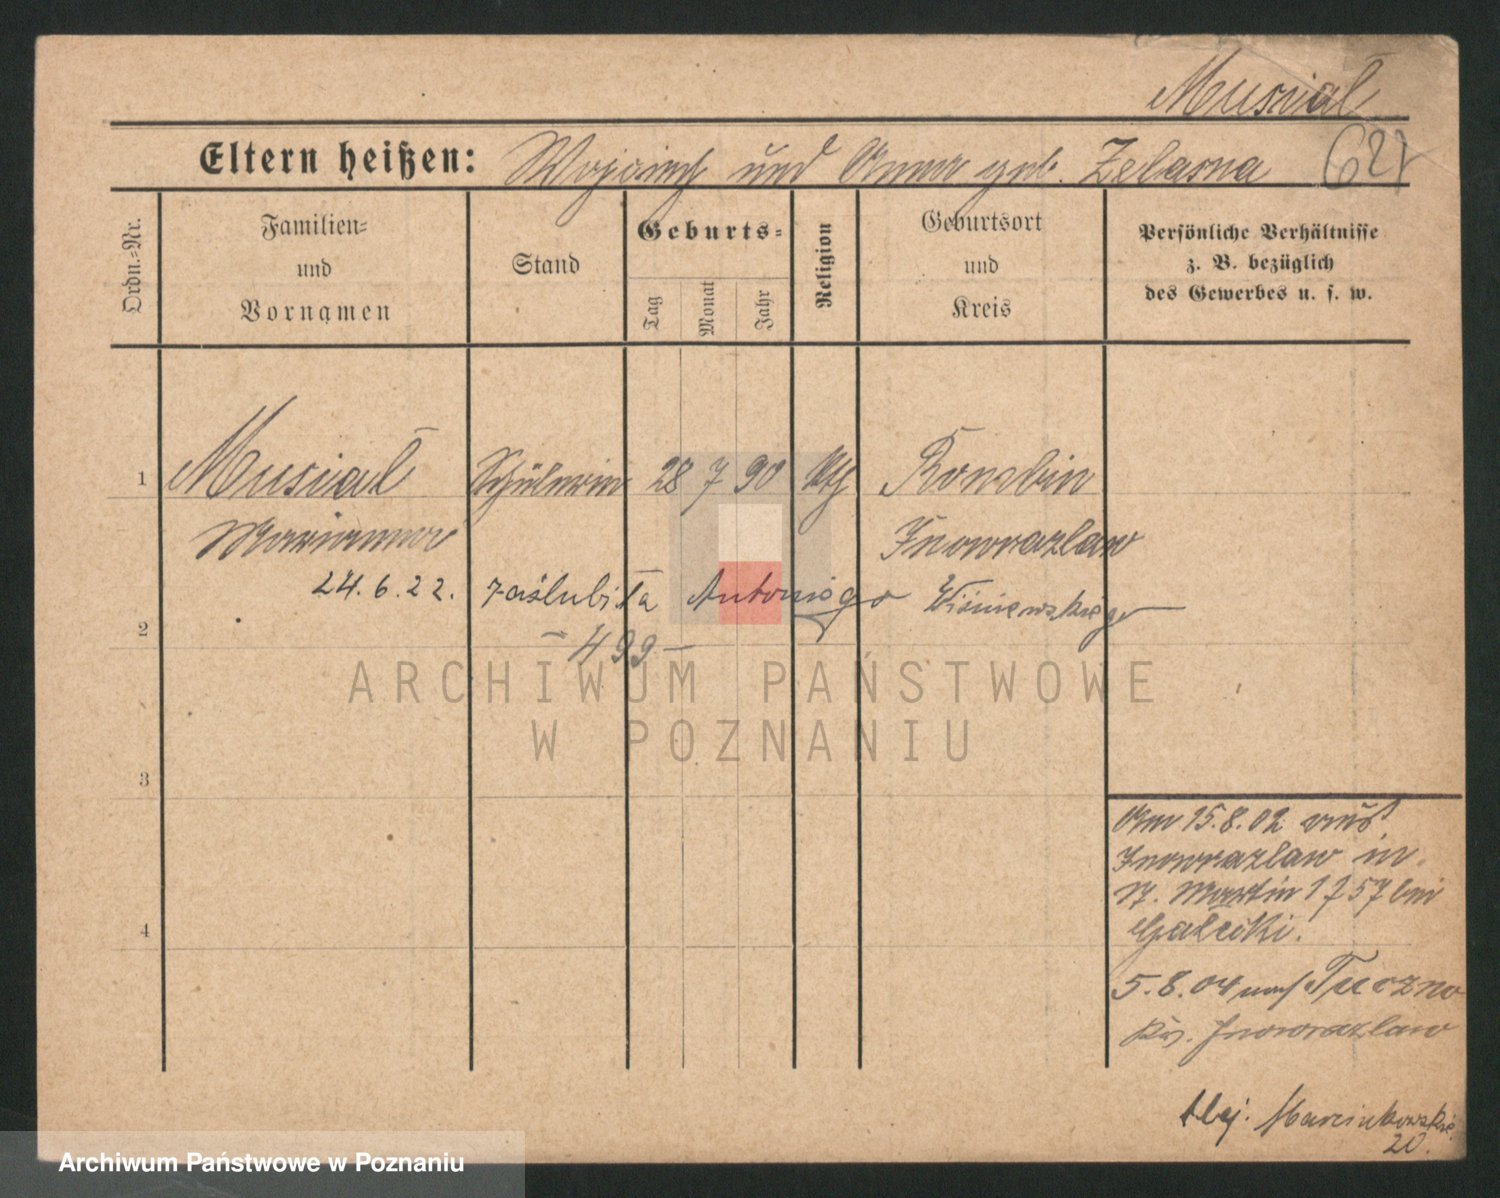 Musiał
Eltern heißen: Wojciech und Anna geb. Zelasna 621
Ordn.-Nr.
Familien-
und
Vornamen
Stand
Geburts-
Tag
Monat
Jahr
Religion
Geburtsort
und
Kreis
Persönliche Verhältnisse
z. B. bezüglich
des Gewerbes u. s. w.
1 Musiał Schülerin 28 7 90 kth Rombin
Marianna Inowrazlaw
24.6.22. zaślubiła Antoniego Wiśniewskiego
2
– 499 –
ARCHIWUM PAŃSTWOWE
W POZNANIU
3
Am 15.8.02 aus
Inowrazlaw in
St. Martin 57 bei
Gałecki.
4
5.8.04 nach Tuczno
Krs. Inowrazlaw
Marcinkowskie
20.
Archiwum Państwowe w Poznaniu